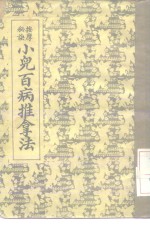 小兒百病推拿法